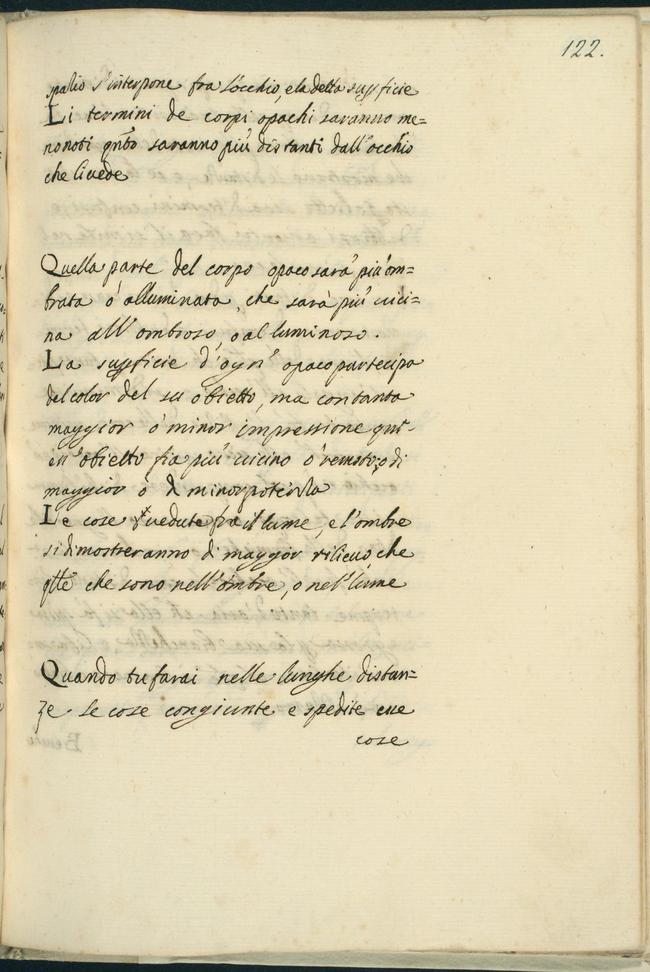 122.
spatio s'interpone fra l'occhio, e la detta supficie
Li termini de corpi opachi saranno me=
no noti qnto saranno più distanti dall'occhio
che li vede
Quella parte del corpo opaco sarà più om=
brata ò alluminata, che sarà più vici=
na all'ombroso, o al luminoso.
La supficie d'ogn' opaco partecipa
del color del su obietto, ma con tanta
maggior ò minor impressione qnt-
obietto fia più vicino ò remoto, o di
maggior ò di minor potentia
Le cose vedute fra il lume, e l'ombre
si dimostreranno di maggior rilievo che
qlle che sono nell'ombre, o nel lume
Quando tu farai nelle lunghe distan=
ze le cose congiunte e spedite
cose